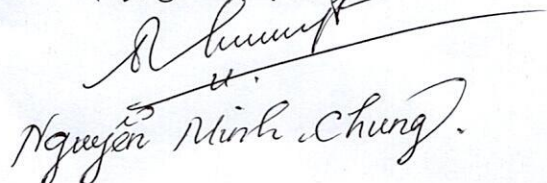 Nguyễn Minh Chung.